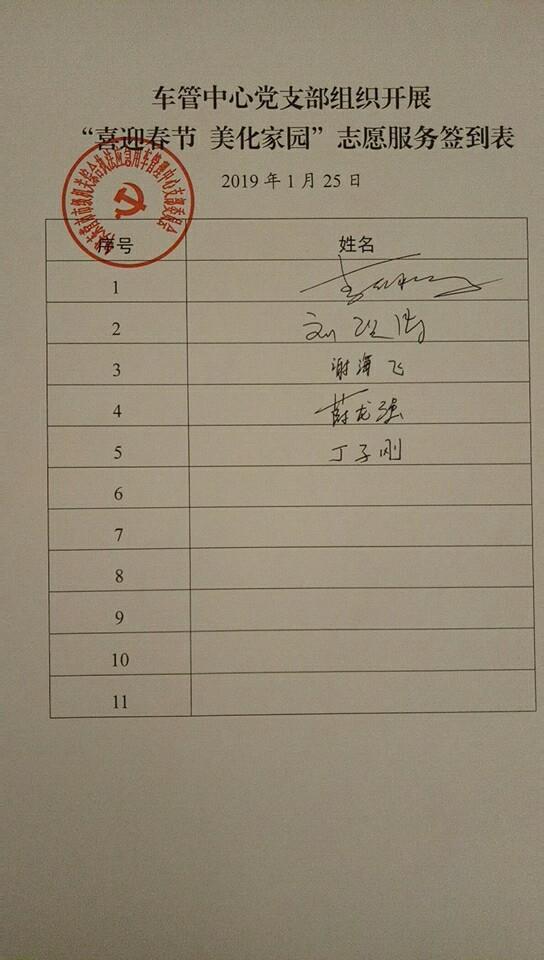 车管中心党支部组织开展
“喜迎春节 美化家园”志愿服务签到表
2019年1月25日
序号 姓名
1
2 刘
3 谢海飞
4 薛龙强
5 丁子刚
6
7
8
9
10
11